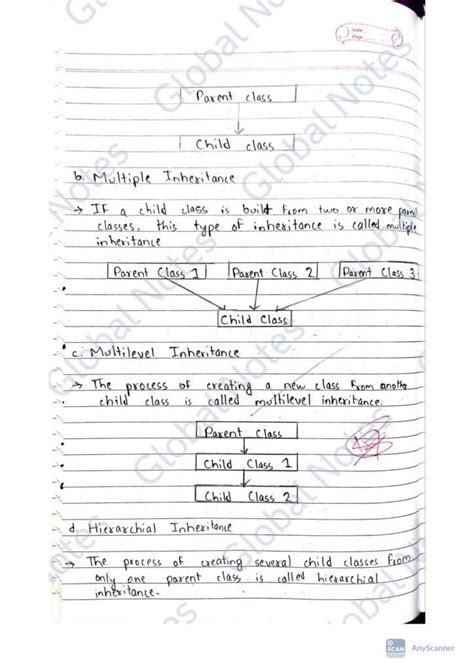 Date
Page
Parent class
Child class
b. Multiple Inheritance
→ If a child class is build from two or more parent
classes, this type of inheritance is called multiple
inheritance
Parent Class 1 Parent Class 2 Parent Class 3
Child Class
c. Multilevel Inheritance
→ The process of creating a new class from anothe
child class is called multilevel inheritance.
Parent Class
Child Class 1
Child Class 2
d. Hierarchial Inheritance
→ The process of creating several child classes from
only one parent class is called hierarchial
inheritance.
Global Notes
Global Notes
Global Notes
Global Notes
Global Notes
Global Notes
SCAN AnyScanner